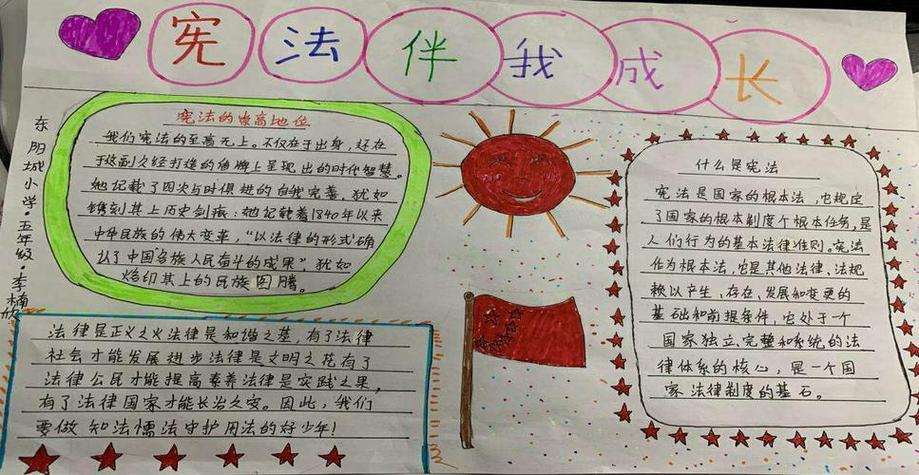 宪法伴我成长
东阳城小学·五年级·李楠欣
宪法的崇高地位
我们宪法的至高无上。不仅在于出身,还在
于这副久经打造的鲁牌上呈现出的时代智慧。
她记载了四次与时俱进的自我完善,犹如
镌刻其上历史剑痕:她记载着1840年以来
中华民族的伟大变革,“以法律的形式确
认了中国各族人民奋斗的成果”,犹如
烙印其上的民族图腾。
法律是正义之火法律是和谐之基,有了法律
社会才能发展进步法律是文明之花有了
法律公民才能提高素养法律是实践之果,
有了法律国家才能长治久安。因此,我们
要做知法懦法守护用法的好少年!
什么是宪法
宪法是国家的根本法,它规定
了国家的根本制度个根本任务,是
人们行为的基本法律准则。宪法
作为根本法,它是其他法律、法规
赖以产生、存在、发展和变更的
基础和前提条件,它处于一个
国家独立、完整和系统的法
律体系的核心,是一个国
家法律制度的基石。